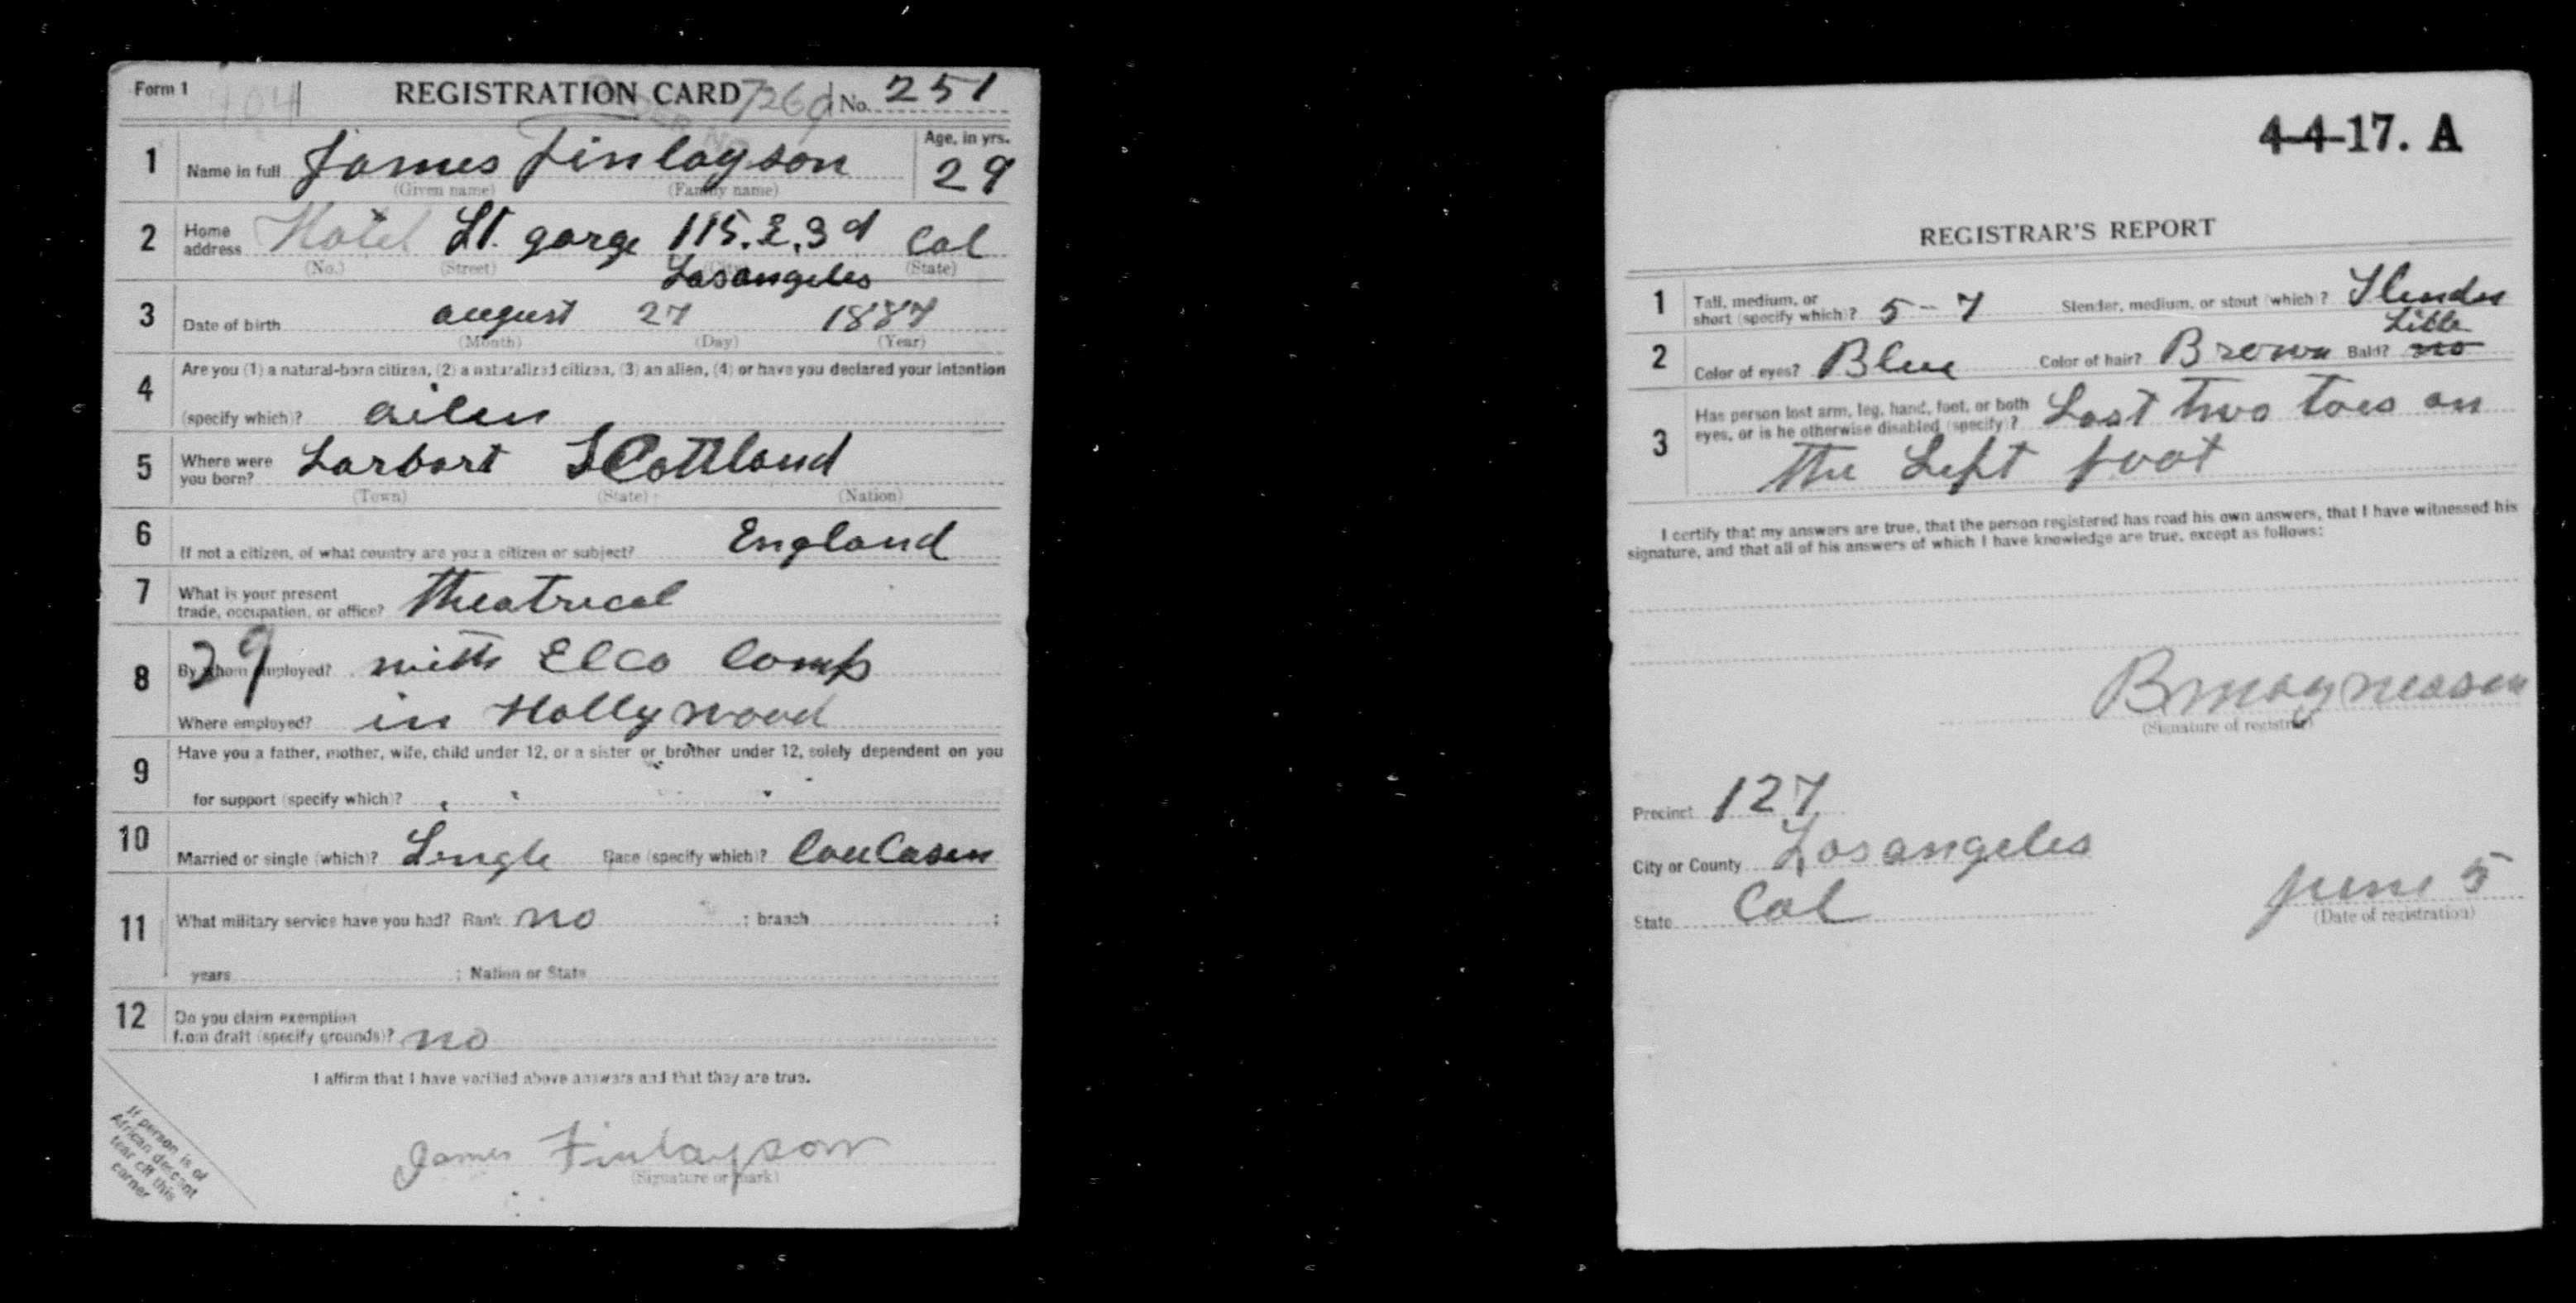 Form 1 REGISTRATION CARD No. 251
1 Name in full James Finlayson Age, in yrs. 29
(Given name) (Family name)
2 Home address Hotel St. gorge 115. E. 3d Cal
(No.) (Street) (City) (State)
Losangeles
3 Date of birth august 27 1887
(Month) (Day) (Year)
4 Are you (1) a natural-born citizen, (2) a naturalized citizen, (3) an alien, (4) or have you declared your intention
(specify which)? ailen
5 Where were you born? Larbart Scottland
(Town) (State) (Nation)
6 If not a citizen, of what country are you a citizen or subject? England
7 What is your present trade, occupation, or office? theatrical
29
8 By whom employed? with Elco Comp
Where employed? in Hollywood
9 Have you a father, mother, wife, child under 12, or a sister or brother under 12, solely dependent on you
for support (specify which)?
10 Married or single (which)? Single Race (specify which)? CouCasen
11 What military service have you had? Rank no ; branch ;
years ; Nation or State
12 Do you claim exemption from draft (specify grounds)? no
I affirm that I have verified above answers and that they are true.
James Finlayson
(Signature or mark)
If person is of
African descent
tear off this
corner
4-4-17. A
REGISTRAR'S REPORT
1 Tall, medium, or short (specify which)? 5-7 Slender, medium, or stout (which)? Slender
Little
2 Color of eyes? Blue Color of hair? Brown Bald? no
3 Has person lost arm, leg, hand, foot, or both
eyes, or is he otherwise disabled (specify)? Lost two toes on
the Left foot
I certify that my answers are true, that the person registered has read his own answers, that I have witnessed his
signature, and that all of his answers of which I have knowledge are true, except as follows:
(Signature of registrar)
Precinct 127
City or County Losangeles
State Cal
June 5
(Date of registration)